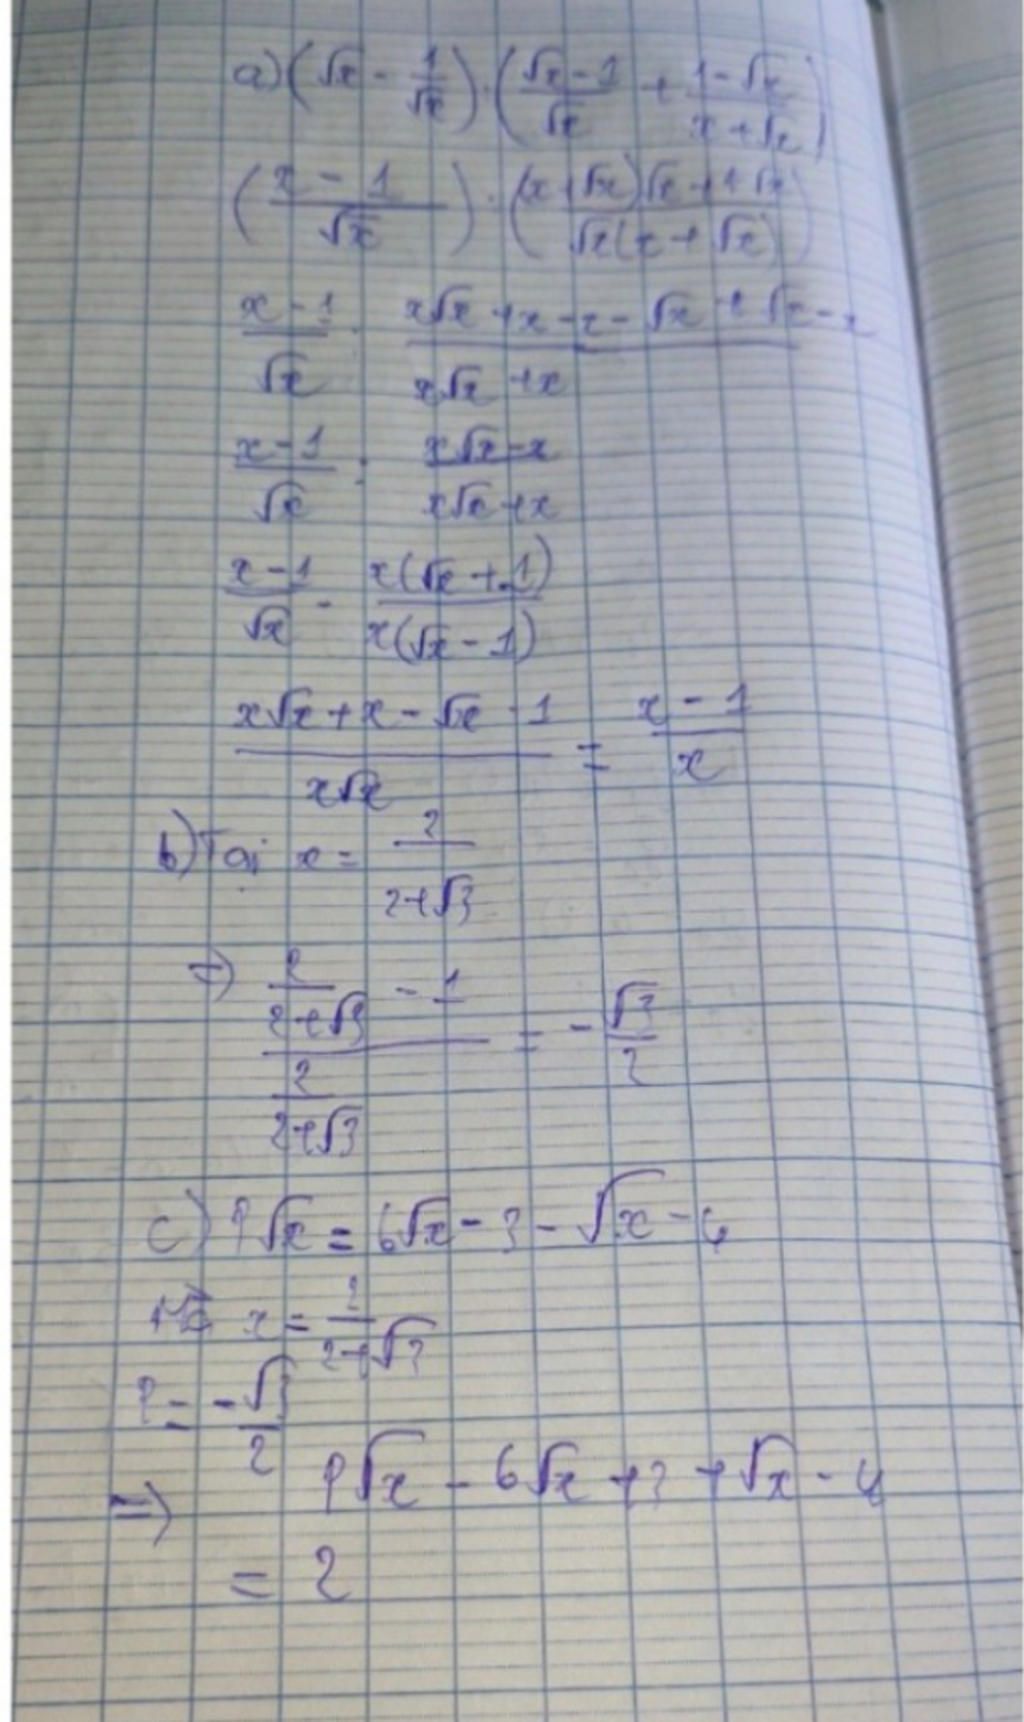 a) (√x - 1/√x) : ((√x - 1)/√x + (1 - √x)/(x + √x))
((x - 1)/√x) : (((x + √x)√x + 1 √x)/(√x(x + √x)))
(x - 1)/√x : (x√x + x - x - √x + √x - x)/(x√x + x)
(x - 1)/√x : (x√x - x)/(x√x + x)
(x - 1)/√x · (x(√x + 1))/(x(√x - 1))
(x√x + x - √x - 1)/(x√x) = (x - 1)/x
b) Tại x = 2/(2+√3)
=> (2/(2+√3) - 1)/(2/(2+√3)) = - √3/2
c) P√x = 6√x - 3 - √(x - 4)
Mà x = 2/(2+√3)
P = - √3/2
=> P√x - 6√x + 3 + √x - 4
= 2